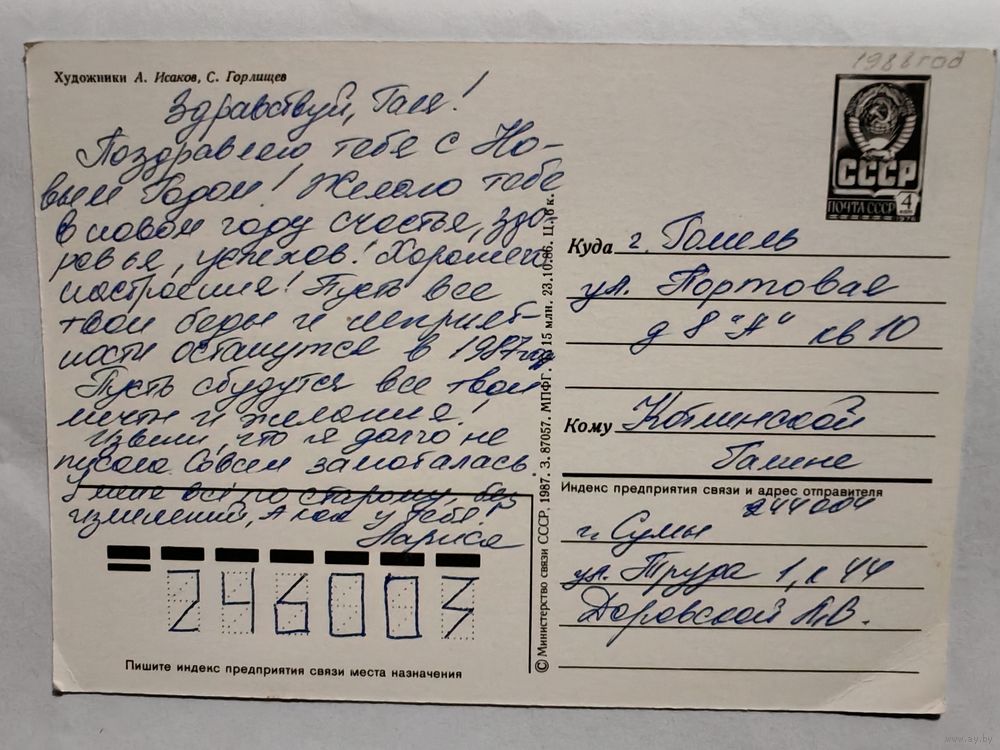 Художники А. Исаков, С. Горлищев
Здравствуй, Галя!
Поздравляю тебя с Но-
вым Годом! Желаю тебе
в новом году счастья, здо-
ровья, успехов! Хорошего
настроения! Пусть все
твои беды и неприят-
ности останутся в 1987 году
Пусть сбудутся все твои
мечты и желания!
Извини, что я долго не
писала. Совсем замоталась
У меня всё по старому, без
изменений, А как у тебя?
Лариса
246003
Пишите индекс предприятия связи места назначения
© Министерство связи СССР, 1987. З. 87057. МПФГ. 15 млн. 23.10.86. Ц. 6 к.
1988 год
СССР
ПОЧТА СССР 4 коп
1976
Куда г. Гомель
ул. Портовая
д 8 "А" кв 10
Кому
Галине
Индекс предприятия связи и адрес отправителя
244004
г. Сумы
ул. Труда 1, к 44
Доровской Л.В.
www.ay.by